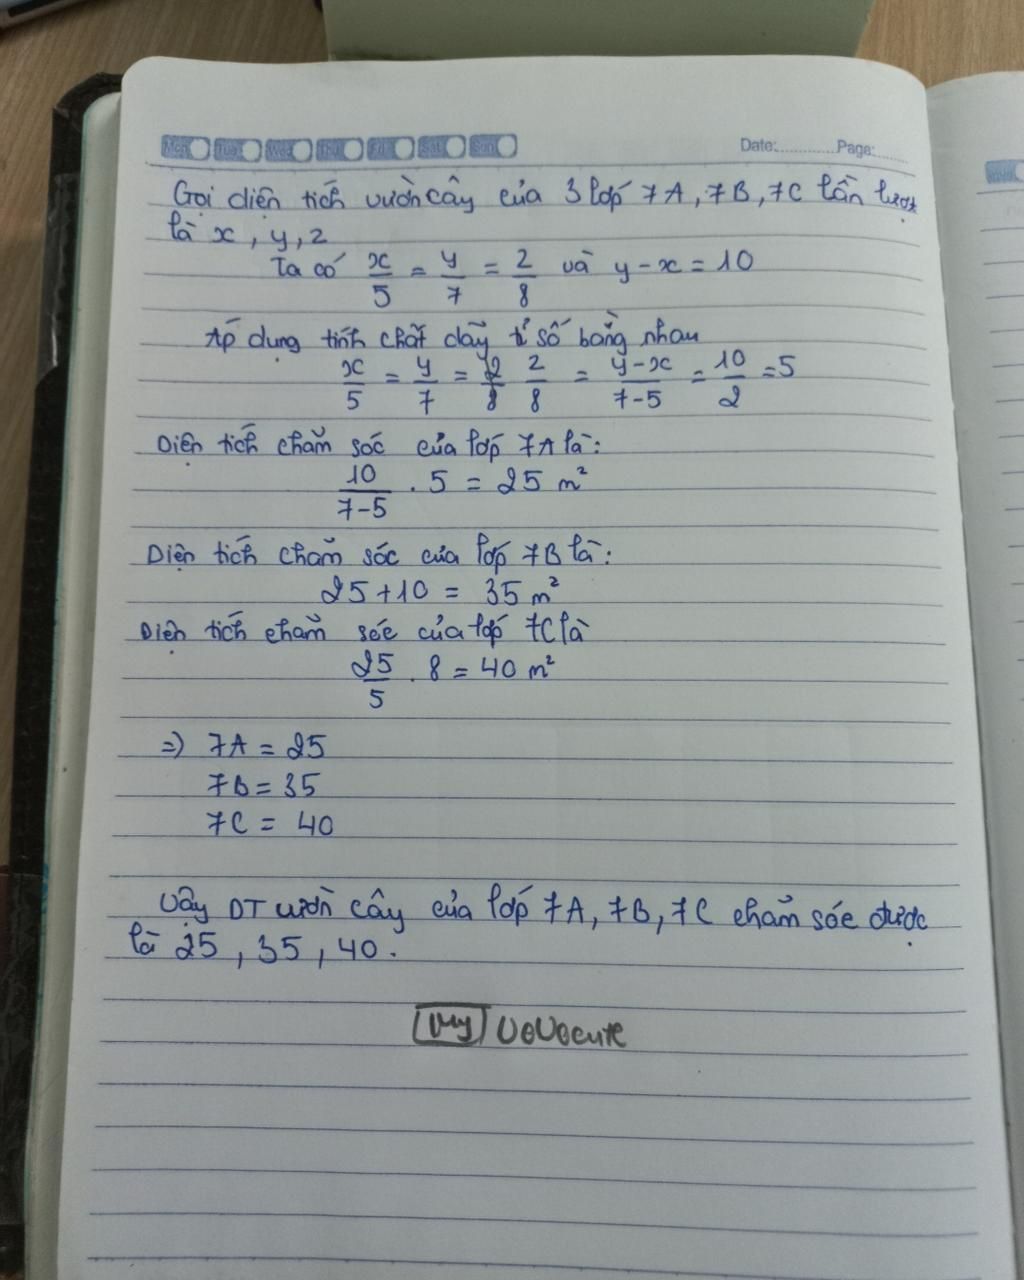 Mon Tue Wed Thu Fri Sat Sun Date:............Page:.......
Gọi diện tích vườn cây của 3 lớp 7A, 7B, 7C lần lượt
là x, y, z
Ta có x/5 = y/7 = z/8 và y - x = 10
Áp dụng tính chất dãy tỉ số bằng nhau
x/5 = y/7 = z/8 = y-x/7-5 = 10/2 = 5
Diện tích chăm sóc của lớp 7A là:
10/7-5 . 5 = 25 m²
Diện tích chăm sóc của lớp 7B là:
25 + 10 = 35 m²
Diện tích chăm sóc của lớp 7C là
25/5 . 8 = 40 m²
=> 7A = 25
7B = 35
7C = 40
Vậy DT vườn cây của lớp 7A, 7B, 7C chăm sóc được
là 25, 35, 40.